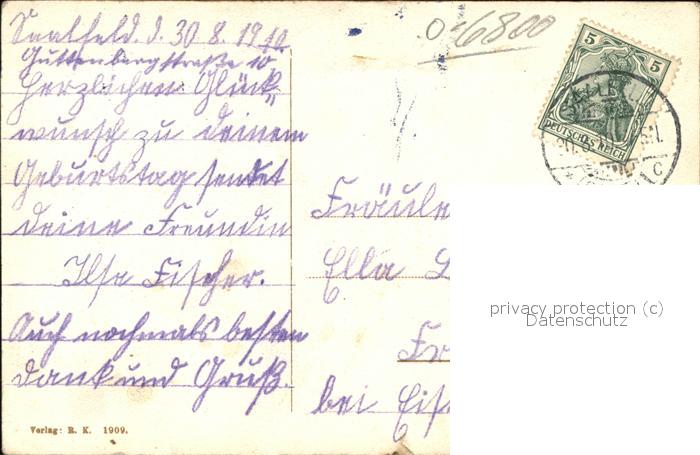 Saalfeld. d. 30.8.1910
Guttenbergstraße 10
Herzlichen Glück-
wunsch zu deinem
Geburtstag sendet
deine Freundin
Ilse Fischer.
Auch nochmals besten
dank und Gruß.
0-6800
5 5
DEUTSCHES REICH
c
Fräule
Ella
Fr
bei Eis
privacy protection (c)
Datenschutz
Verlag: R. K. 1909.